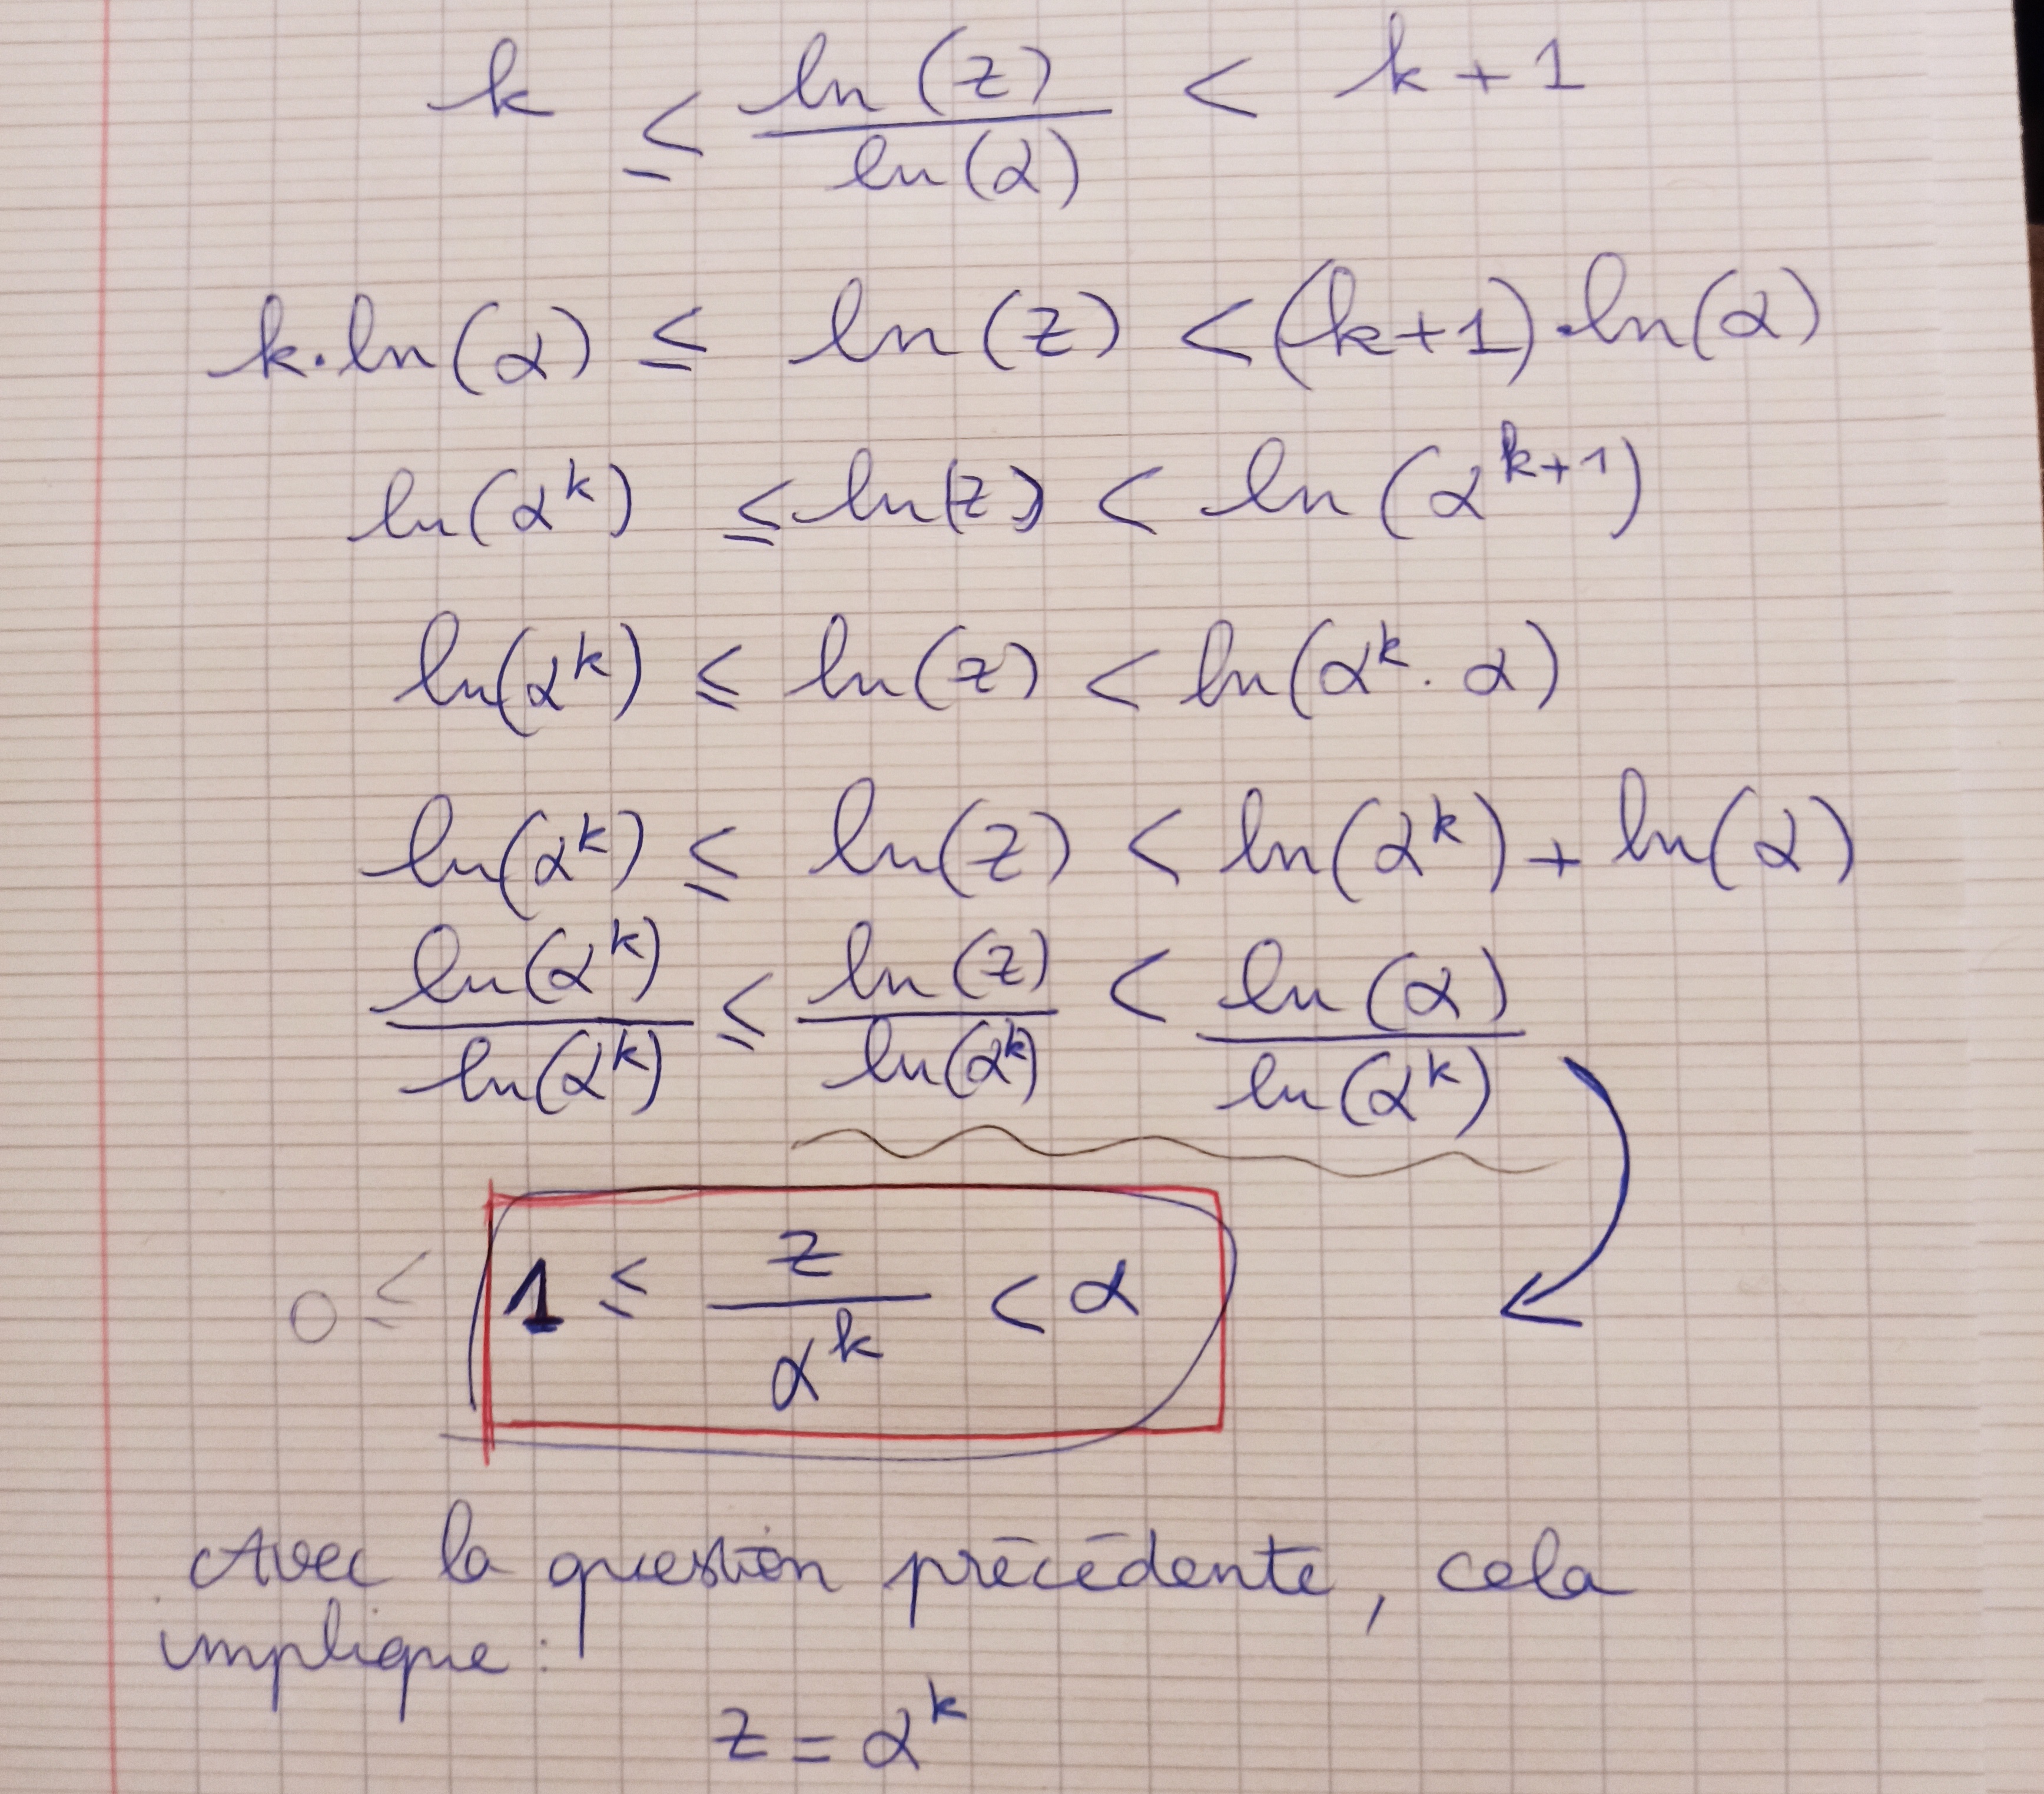 k ≤ ln(z)/ln(α) < k+1
k·ln(α) ≤ ln(z) < (k+1)·ln(α)
ln(α^k) ≤ ln(z) < ln(α^{k+1})
ln(α^k) ≤ ln(z) < ln(α^k · α)
ln(α^k) ≤ ln(z) < ln(α^k) + ln(α)
ln(α^k)/ln(α^k) ≤ ln(z)/ln(α^k) < ln(α)/ln(α^k)
0 ≤ 1 ≤ z/α^k < α
Avec la question précédente, cela
implique :
z = α^k